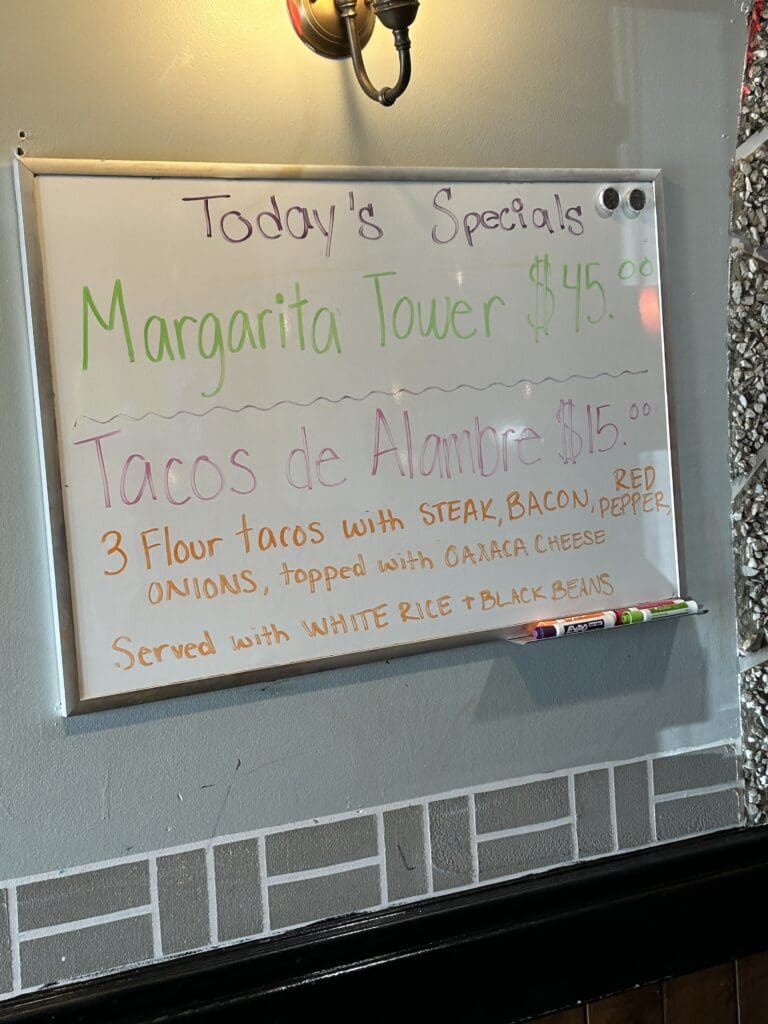 Today's Specials
Margarita Tower $45.00
Tacos de Alambre $15.00
3 Flour tacos with STEAK, BACON, RED PEPPER,
ONIONS, topped with OAXACA CHEESE
Served with WHITE RICE + BLACK BEANS
EXPO